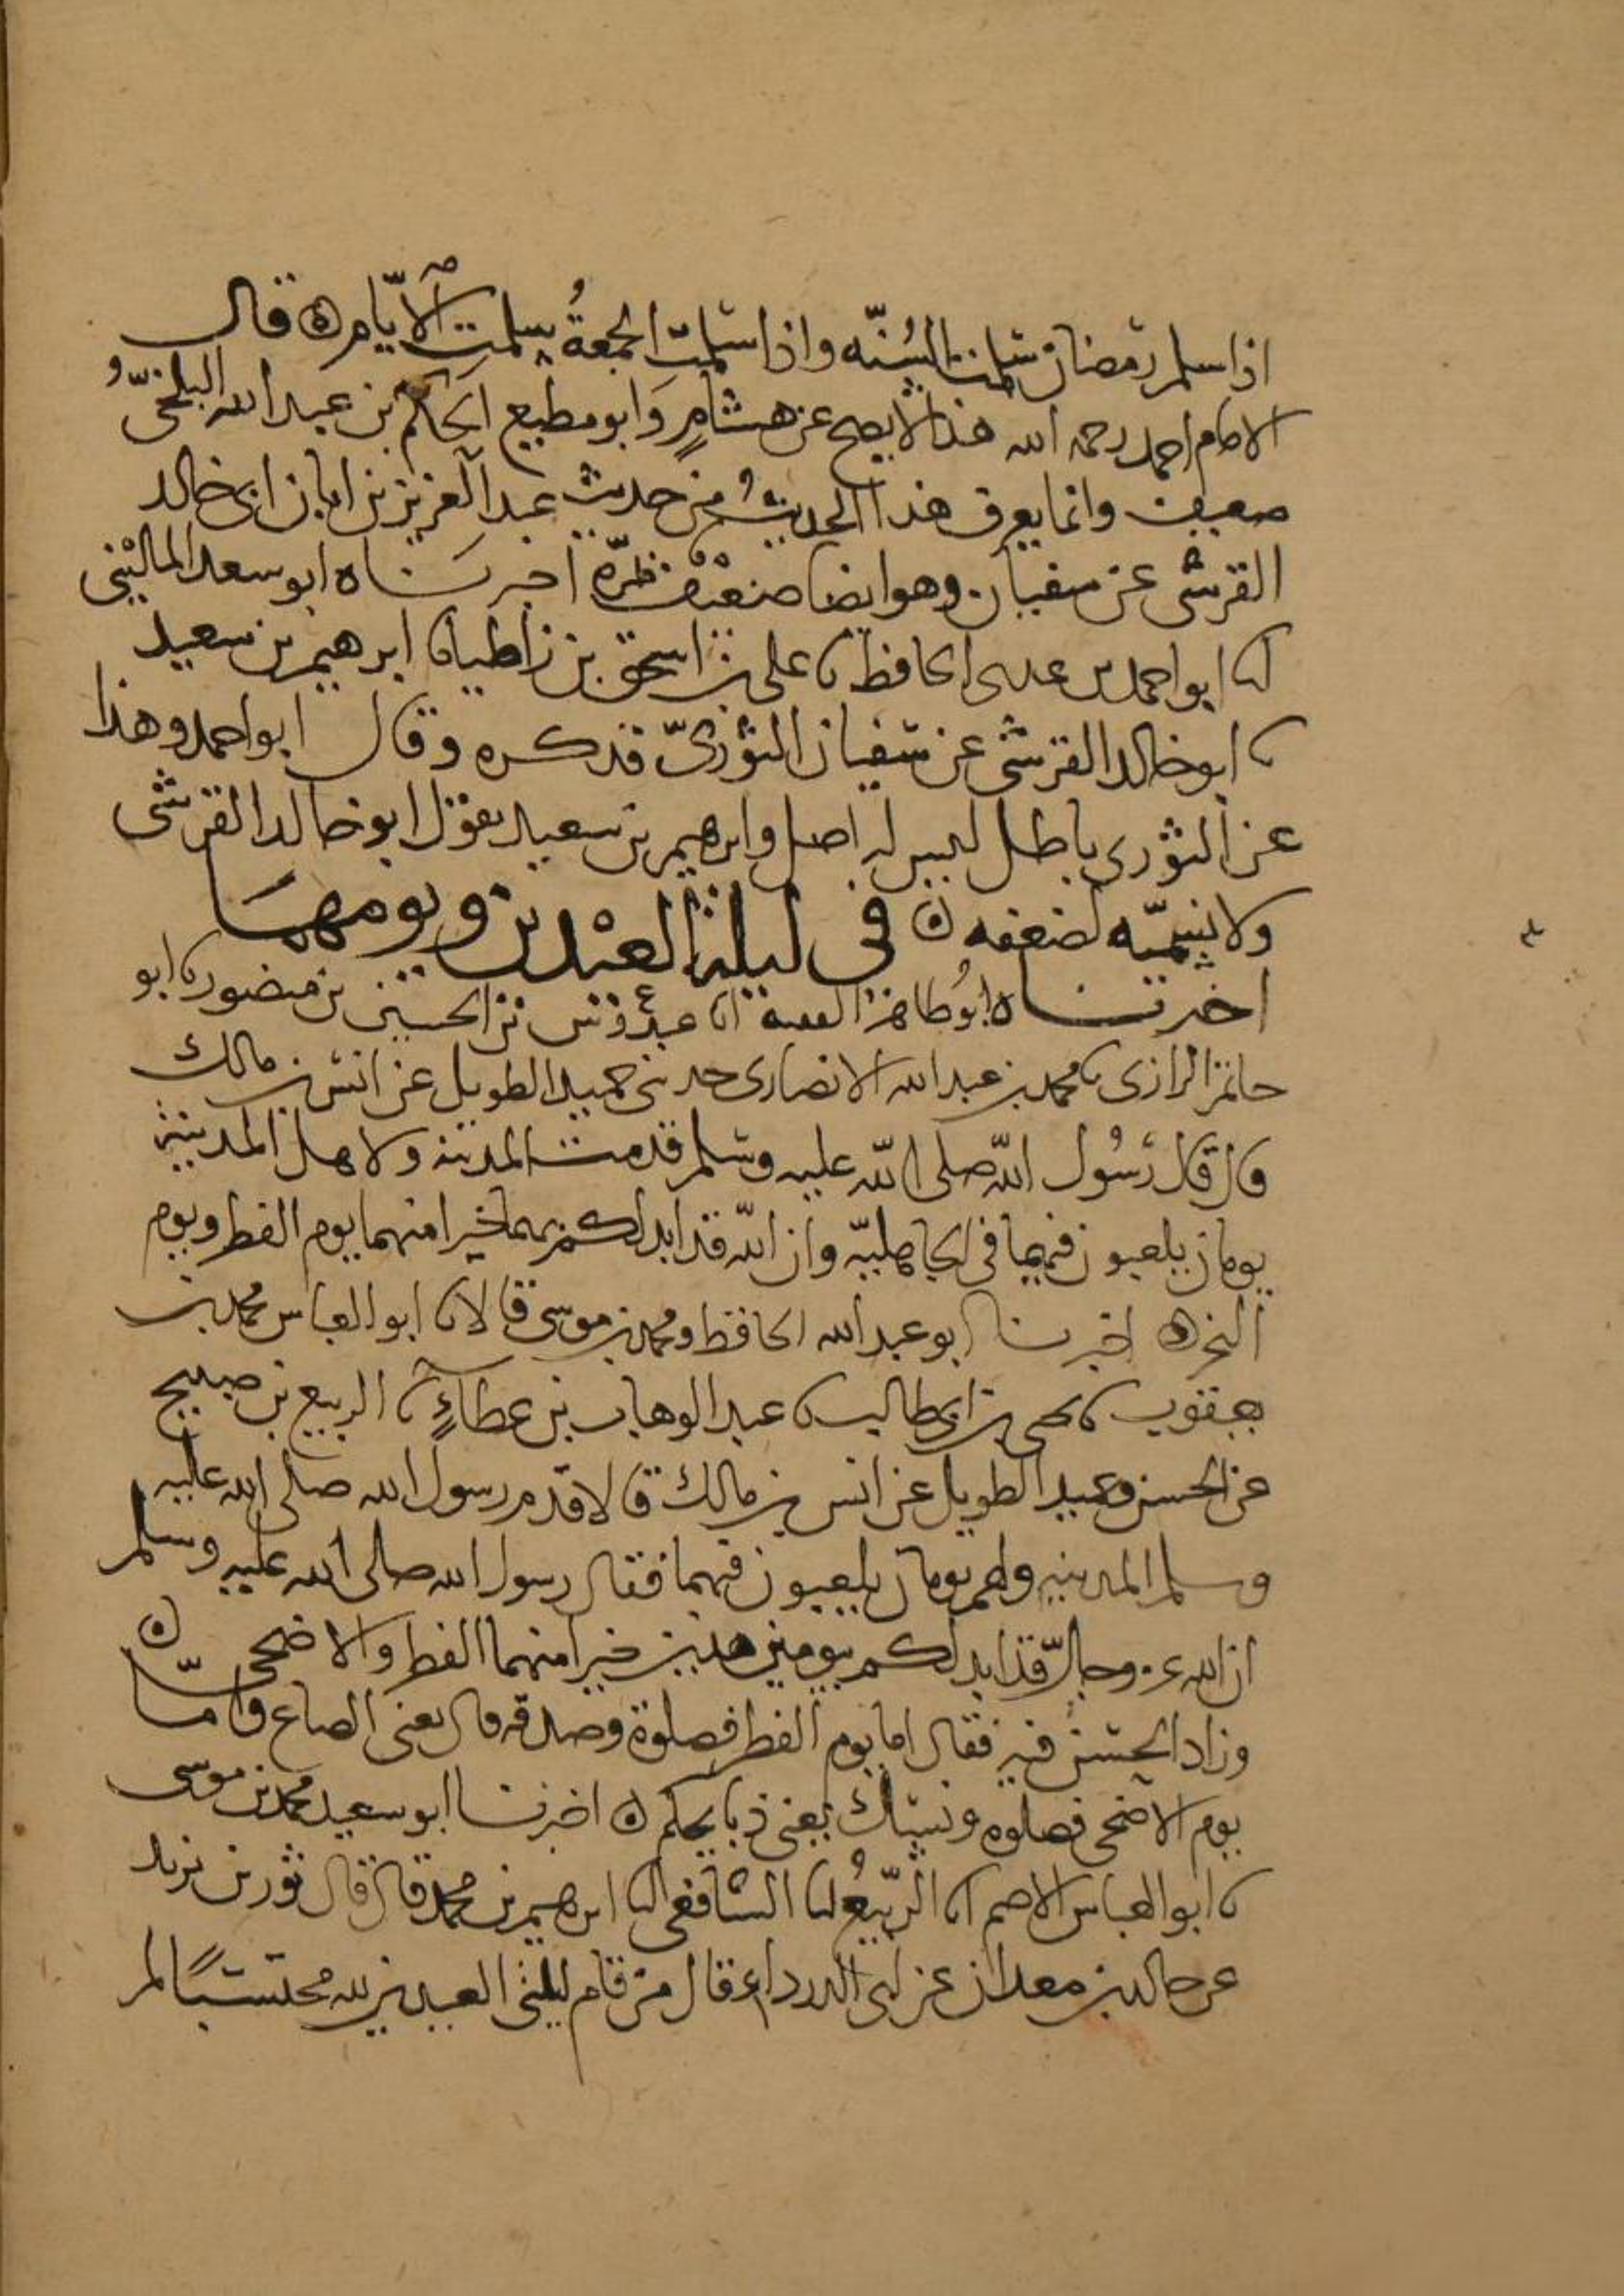 اذا سلم رمضان سلمت السُنّه واذا سلمت الجمعةُ سلمت الايّام ه قال
الامام احمد رحمه الله هذا لا يصح عن هشامٍ وَابو مطيع الحكم بن عبد الله البلخيّ
ضعيف وانما يعرف هذا الحديثُ من حديث عبد العزيز بن ابان ابى خالد
القرشى عن سفيان وهو ايضا ضعيف بمَرّه اخبرَناه ابو سعد المالينى
انا ابو احمد بن عدى الحافظ نا على بن اسحق بن زاطيا نا ابرهيم بن سعيد
نا ابو خالد القرشى عن سفيان الثورىّ فذكره وقال ابو احمد وهذا
عن الثورى باطل ليس له اصل وابرهيم بن سعيد يقول ابو خالد القرشى
ولا يسمّيه لضعفه ه في ليلة العيْدين ويومهما
اخبرناه ابُو طاهر الفقيه انا عبدُوس بن الحسين بن منصور نا ابو
حاتم الرازى نا محمد بن عبد الله الانصارى حدثنى حميد الطويل عن انس بن مالك
قال قال رسُول الله صلى الله عليه وسلم قدمت المدينه ولاهل المدينة
يومان يلعبون فيهما فى الجاهليّه وان الله قد ابدلكم بهما خيرا منهما يوم الفطر ويوم
النحر ه اخبرنا ابو عبد الله الحافظ ومحمد بن موسى قالا نا ابو العباس محمد بن
يعقوب نا يحيى بن ابى طالب نا عبد الوهاب بن عطاءٍ نا الربيع بن صبيح
عن الحسن وحميد الطويل عن انس بن مالك قالا قدم رسول الله صلى الله عليه
وسلم المدينه ولهم يومان يلعبون فيهما فقال رسول الله صلى الله عليه وسلم
ان الله عز وجلّ قد ابدلكم بيومين هذين خيرا منهما الفطر والاضحى ه
وزاد الحسن فيه فقال اما يوم الفطر فصلوة وصدقه قال يعنى الصاع وامّا
يوم الاضحى فصلوه ونسك يعنى ذبايحكم ه اخبرنا ابو سعيد محمد بن موسى
نا ابو العباس الاصم انا الربيعُ انا الشافعى انا ابرهيم بن محمد قال قال ثور بن يزيد
عن خالد بن معدان عن ابى الدرداء قال من قام ليلتى العيدين لله محتسبًا لم